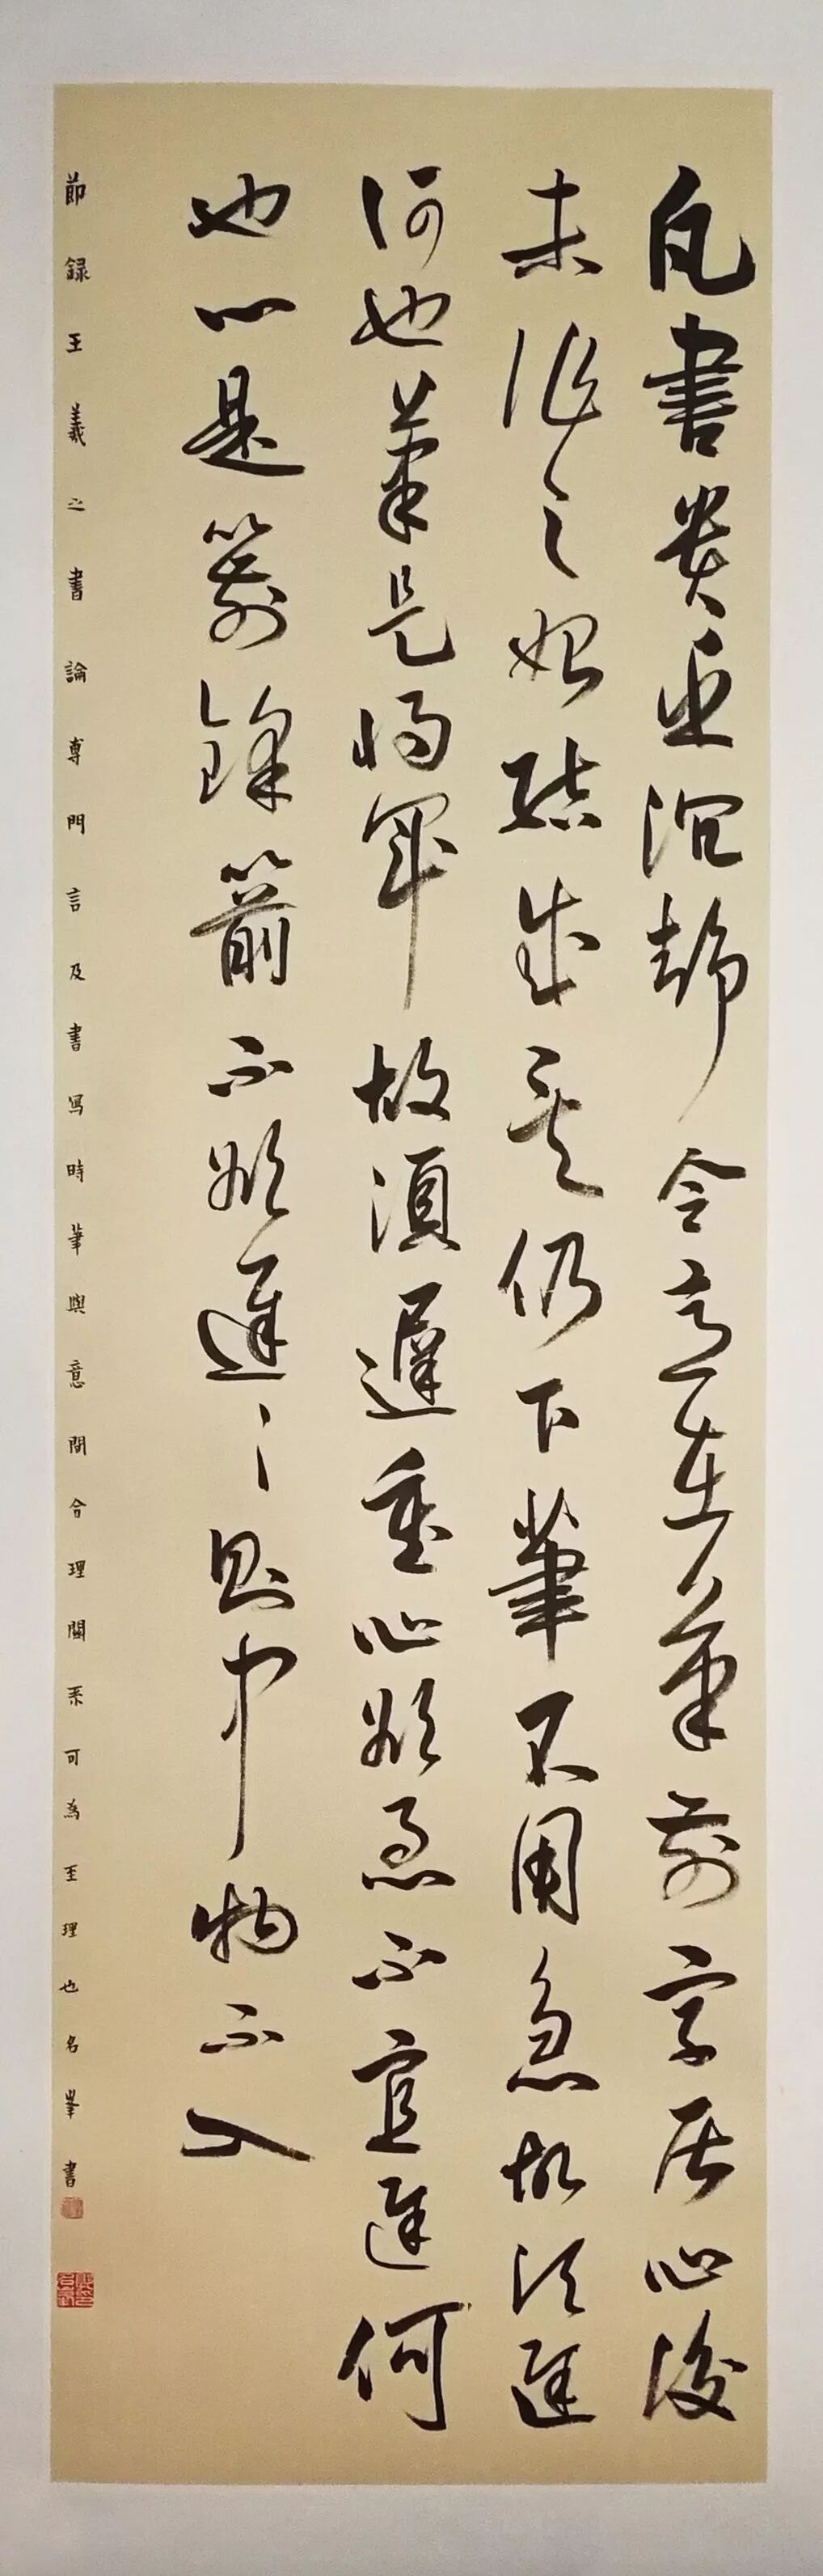 凡書貴乎沉靜令意在筆前字居心後
未作之始結成意仍下筆不用急故須遲
何也筆是將軍故須遲重心欲急不宜遲何
也心是箭鋒箭不欲遲遲則中物不入
節録王羲之書論專門言及書寫時筆與意間合理關系可為至理也名峯書